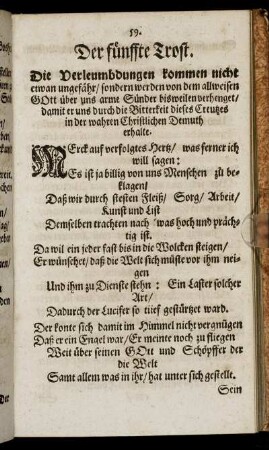 59.
Der fünffte Trost.
Die Verleumbdungen kommen nicht
etwan ungefähr/ sondern werden von dem allweisen
GOtt über uns arme Sünder bisweilen verhenget/
damit er uns durch die Bitterkeit dieses Creutzes
in der wahren Christlichen Demuth
erhalte.
MErck auf verfolgtes Hertz/ was ferner ich
will sagen:
Es ist ja billig von uns Menschen zu be-
klagen/
Daß wir durch steften Fleiß/ Sorg/ Arbeit/
Kunst und List
Demselben trachten nach/ was hoch und präch-
tig ist.
Da wil ein jeder fast bis in die Wolcken steigen/
Er wünschet/ daß die Welt sich müste vor ihm nei-
gen
Und ihm zu Dienste stehn: Ein Laster solcher
Art/
Dadurch der Lucifer so tief gestürtzet ward.
Der konte sich damit im Himmel nicht vergnügen
Daß er ein Engel war/ Er meinte noch zu fliegen
Weit über seinen GOtt und Schöpffer der
die Welt
Samt allem was in ihr/ hat unter sich gestellt.
Sein